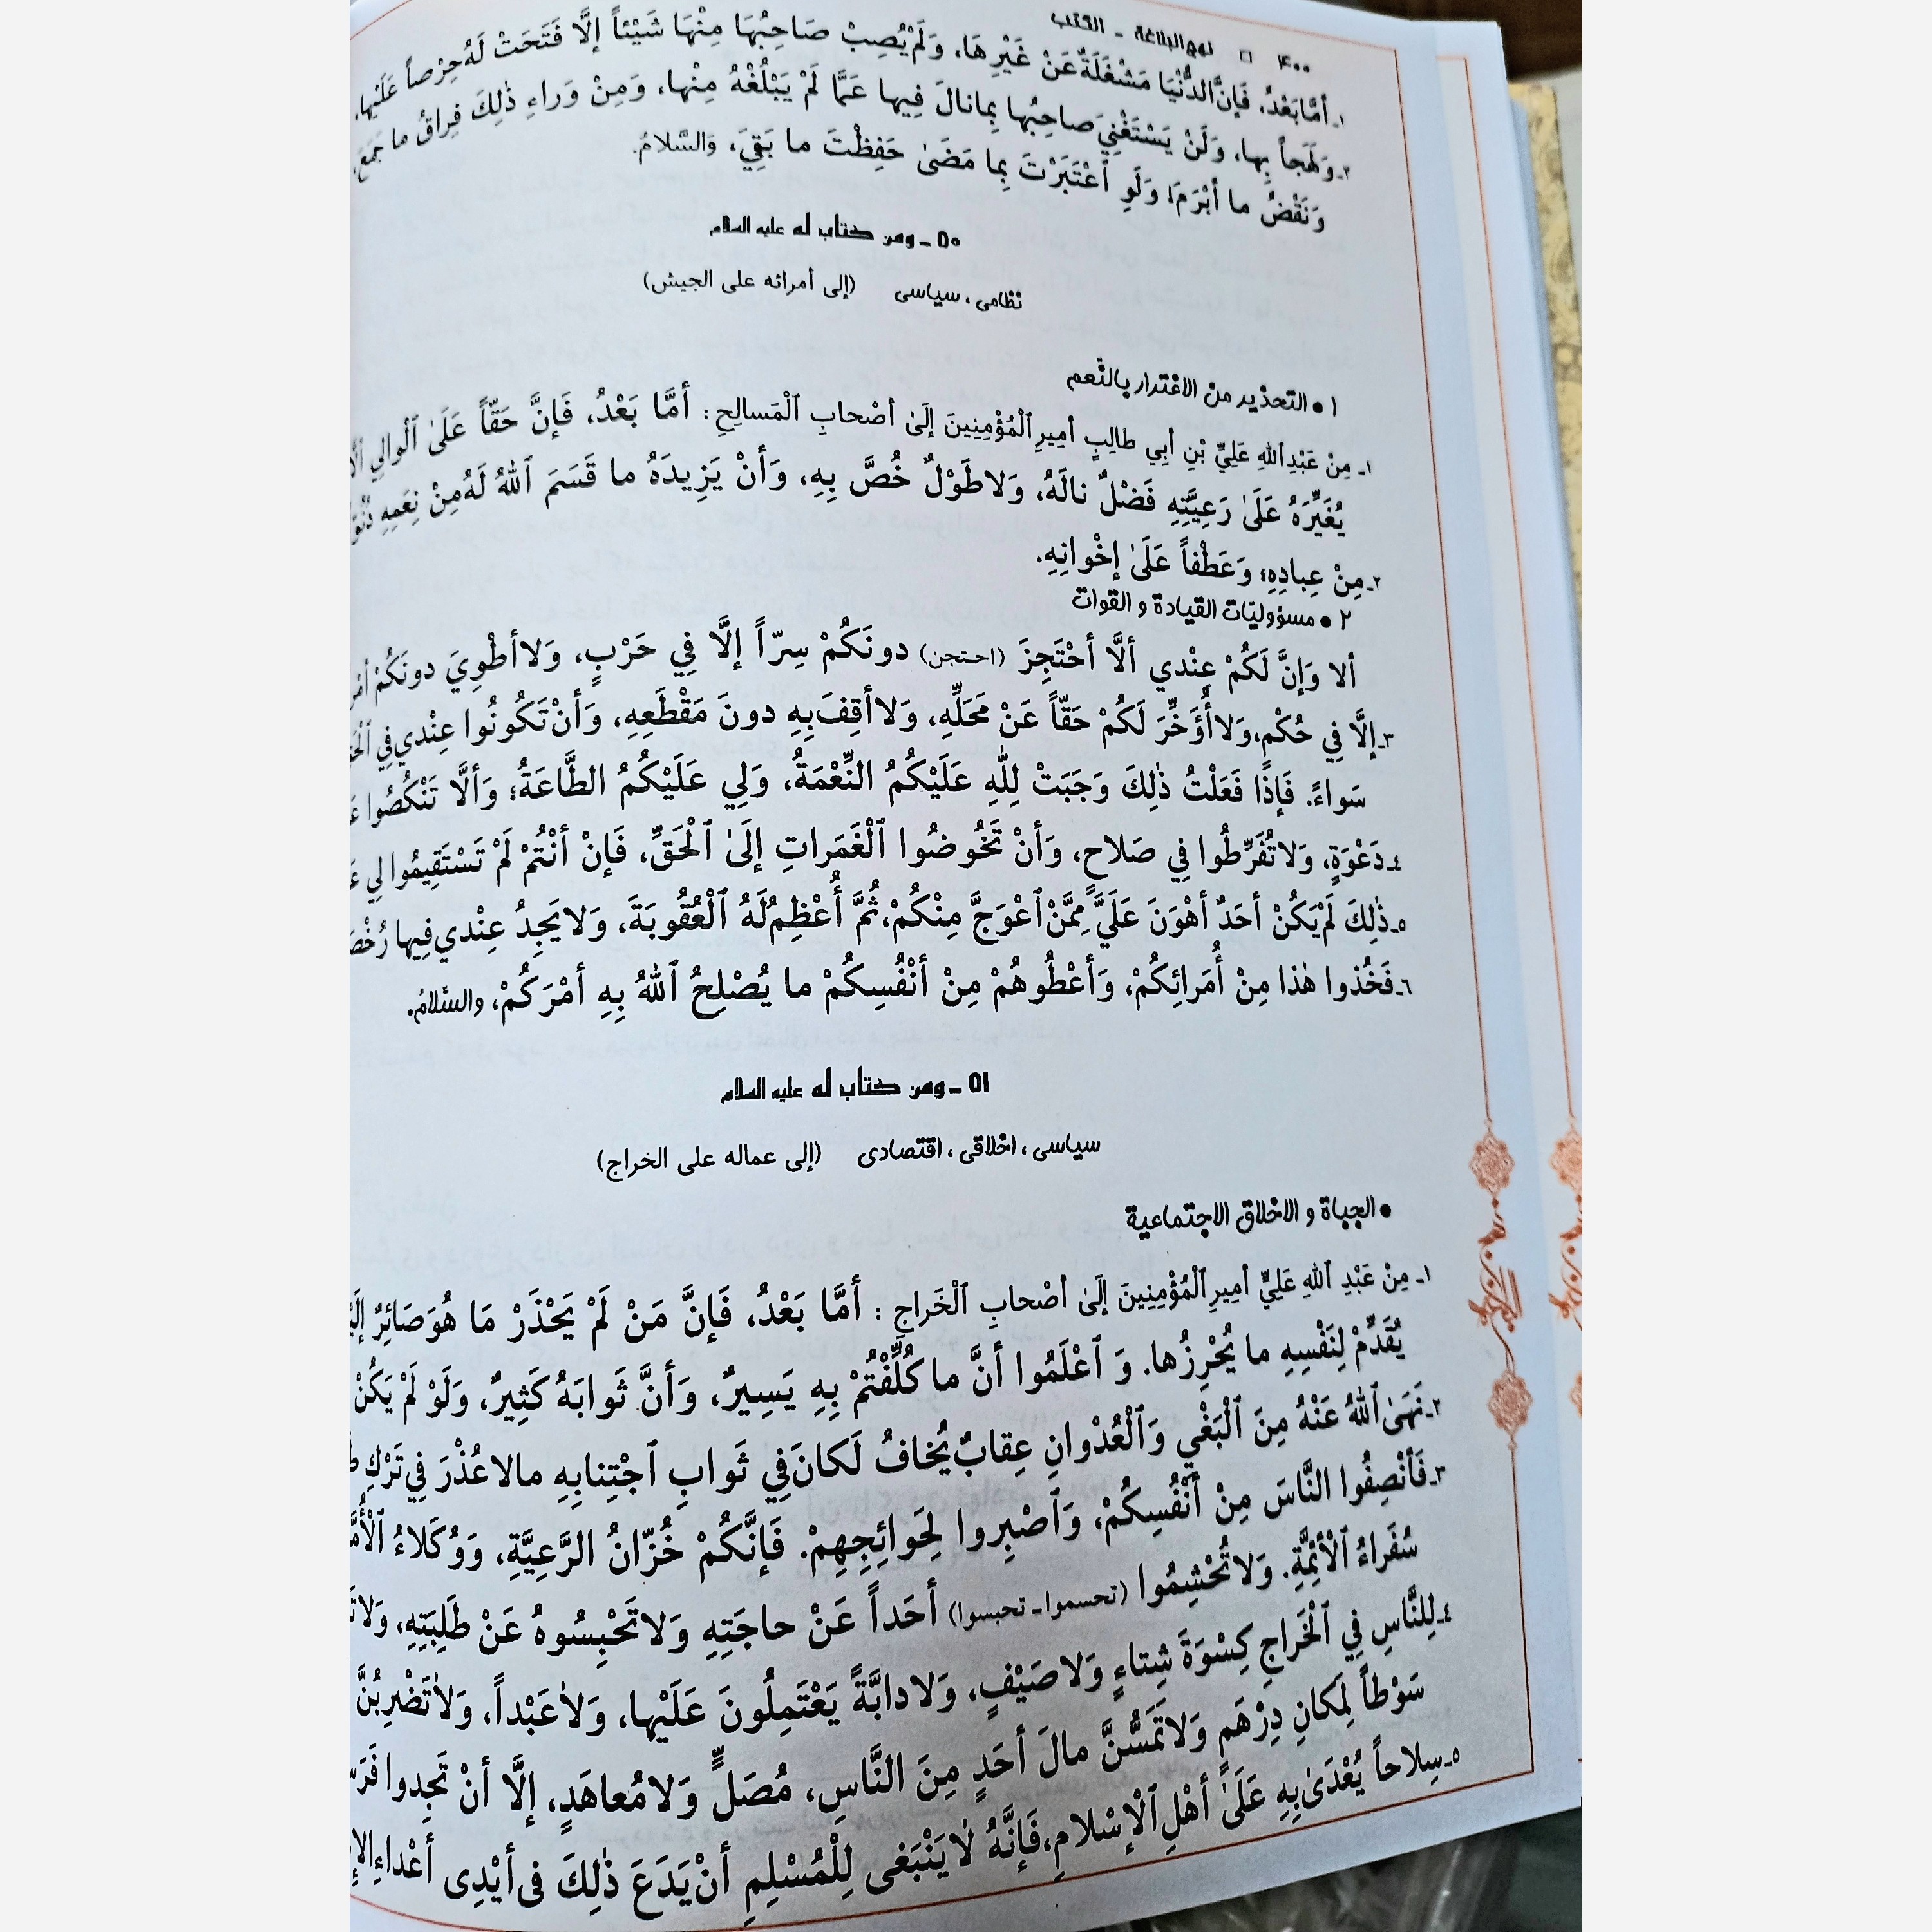 ۴۰۰ □ نهج البلاغة - الكتب
۱ـ أَمَّا بَعْدُ، فَإِنَّ الدُّنْيَا مَشْغَلَةٌ عَنْ غَيْرِهَا، وَلَمْ يُصِبْ صَاحِبُهَا مِنْهَا شَيْئاً إلَّا فَتَحَتْ لَهُ حِرْصاً عَلَيْها،
۲ـ وَلَهَجاً بِها، وَلَنْ يَسْتَغْنِيَ صاحِبُها بِمانالَ فِيها عَمَّا لَمْ يَبْلُغْهُ مِنْها، وَمِنْ وَراءِ ذٰلِكَ فِراقُ ما جَمَعَ،
وَنَقْضُ ما أَبْرَمَ! وَلَوِ ٱعْتَبَرْتَ بِما مَضَىٰ حَفِظْتَ ما بَقِيَ، وَالسَّلامُ.
۵۰ ـ ومن كتاب له عليه السلام
نظامی، سیاسی (إلى أمرائه على الجيش)
۱ ● التحذير من الاغترار بالنعم
۱ـ مِنْ عَبْدِ ٱللهِ عَلِيِّ بْنِ أَبِي طالِبٍ أَمِيرِ ٱلْمُؤْمِنِينَ إِلَىٰ أَصْحابِ ٱلْمَسالِحِ: أَمَّا بَعْدُ، فَإِنَّ حَقّاً عَلَىٰ ٱلْوالِي
يُغَيِّرَهُ عَلَىٰ رَعِيَّتِهِ فَضْلٌ نالَهُ، وَلا طَوْلٌ خُصَّ بِهِ، وَأَنْ يَزِيدَهُ ما قَسَمَ ٱللهُ لَهُ مِنْ نِعَمِهِ
۲ـ مِنْ عِبادِهِ، وَعَطْفاً عَلَىٰ إِخْوانِهِ.
۲ ● مسؤوليات القيادة و القوات
ألا وَإِنَّ لَكُمْ عِنْدي ألَّا أَحْتَجِزَ (احتجن) دونَكُمْ سِرّاً إِلَّا فِي حَرْبٍ، وَلا أَطْوِيَ دونَكُمْ
۳ـ إِلَّا فِي حُكْمٍ، وَلا أُؤَخِّرَ لَكُمْ حَقّاً عَنْ مَحَلِّهِ، وَلا أَقِفَ بِهِ دونَ مَقْطَعِهِ، وَأَنْ تَكُونُوا عِنْدي فِي
سَواءً. فَإِذَا فَعَلْتُ ذٰلِكَ وَجَبَتْ لِلّٰهِ عَلَيْكُمُ النِّعْمَةُ، وَلِي عَلَيْكُمُ الطَّاعَةُ؛ وَأَلَّا تَنْكُصُوا
٤ـ دَعْوَةٍ، وَلا تُفَرِّطُوا فِي صَلاحٍ، وَأَنْ تَخُوضُوا ٱلْغَمَراتِ إِلَىٰ ٱلْحَقِّ، فَإِنْ أَنْتُمْ لَمْ تَسْتَقِيمُوا لِي
٥ـ ذٰلِكَ لَمْ يَكُنْ أَحَدٌ أَهْوَنَ عَلَيَّ مِمَّنْ ٱعْوَجَّ مِنْكُمْ، ثُمَّ أُعْظِمُ لَهُ ٱلْعُقُوبَةَ، وَلا يَجِدُ عِنْدي فِيها
٦ـ فَخُذوا هٰذا مِنْ أُمَرائِكُمْ، وَأَعْطُوهُمْ مِنْ أَنْفُسِكُمْ ما يُصْلِحُ ٱللهُ بِهِ أَمْرَكُمْ، والسَّلامُ.
۵۱ ـ ومن كتاب له عليه السلام
سیاسی، اخلاقی، اقتصادی (إلى عماله على الخراج)
● الجباة و الاخلاق الاجتماعية
۱ـ مِنْ عَبْدِ ٱللهِ عَلِيٍّ أَمِيرِ ٱلْمُؤْمِنِينَ إِلَىٰ أَصْحابِ ٱلْخَراجِ: أَمَّا بَعْدُ، فَإِنَّ مَنْ لَمْ يَحْذَرْ مَا هُوَ صَائِرٌ
يُقَدِّمْ لِنَفْسِهِ ما يُحْرِزُها. وَ ٱعْلَمُوا أَنَّ ما كُلِّفْتُمْ بِهِ يَسِيرٌ، وَأَنَّ ثَوابَهُ كَثِيرٌ، وَلَوْ لَمْ يَكُنْ
۲ـ نَهَىٰ ٱللهُ عَنْهُ مِنَ ٱلْبَغْيِ وَٱلْعُدْوانِ عِقابٌ يُخافُ لَكانَ فِي ثَوابِ ٱجْتِنابِهِ مالا عُذْرَ فِي تَرْكِ
۳ـ فَأَنْصِفُوا النَّاسَ مِنْ أَنْفُسِكُمْ، وَٱصْبِروا لِحَوائِجِهِمْ. فَإِنَّكُمْ خُزّانُ الرَّعِيَّةِ، وَوُكَلاءُ
سُفَراءُ ٱلْأَئِمَّةِ. وَلا تُحْشِمُوا (تحسموا ـ تحبسوا) أَحَداً عَنْ حاجَتِهِ وَلا تَحْبِسُوهُ عَنْ طَلِبَتِهِ،
٤ـ لِلنَّاسِ فِي ٱلْخَراجِ كِسْوَةَ شِتاءٍ وَلا صَيْفٍ، وَلا دابَّةً يَعْتَمِلُونَ عَلَيْها، وَلا عَبْداً، وَلا تَضْرِبُنَّ
سَوْطاً لِمَكانِ دِرْهَمٍ وَلا تَمَسُّنَّ مالَ أَحَدٍ مِنَ النَّاسِ، مُصَلٍّ وَلا مُعاهَدٍ، إِلَّا أَنْ تَجِدوا
٥ـ سِلاحاً يُعْدَىٰ بِهِ عَلَىٰ أَهْلِ ٱلْإِسْلامِ، فَإِنَّهُ لا يَنْبَغى لِلْمُسْلِمِ أَنْ يَدَعَ ذٰلِكَ فى أَيْدِى أَعْداءِ